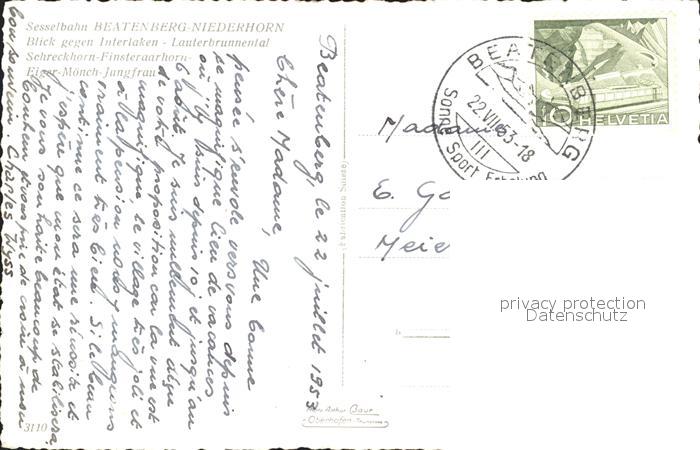 Sesselbahn BEATENBERG-NIEDERHORN
Blick gegen Interlaken - Lauterbrunnental
Schreckhorn-Finsteraarhorn-
Eiger-Mönch-Jungfrau
Beatenberg, le 22 juillet 1953
Chère Madame, Une bonne
pensée s'envole vers vous depuis
ce magnifique lieu de vacances
où j'y suis depuis 10 j. et jusqu'au
Je suis nullement déçu
de votre proposition car la vue est
magnifique, le village très joli et
à la pension nous y mangeons
vraiment très bien. Si le beau
continue ce sera une réussite et
j'espère que mon état se stabilisera.
Je vous souhaite beaucoup de
bonheur et vous prie de croire à mon
3110
BEATENBERG
22.VII.53-18
III
Sonne Sport Erholung
10 HELVETIA
Madame
E. Go
Meie
Arthur Baur
Oberhofen
privacy protection
Datenschutz